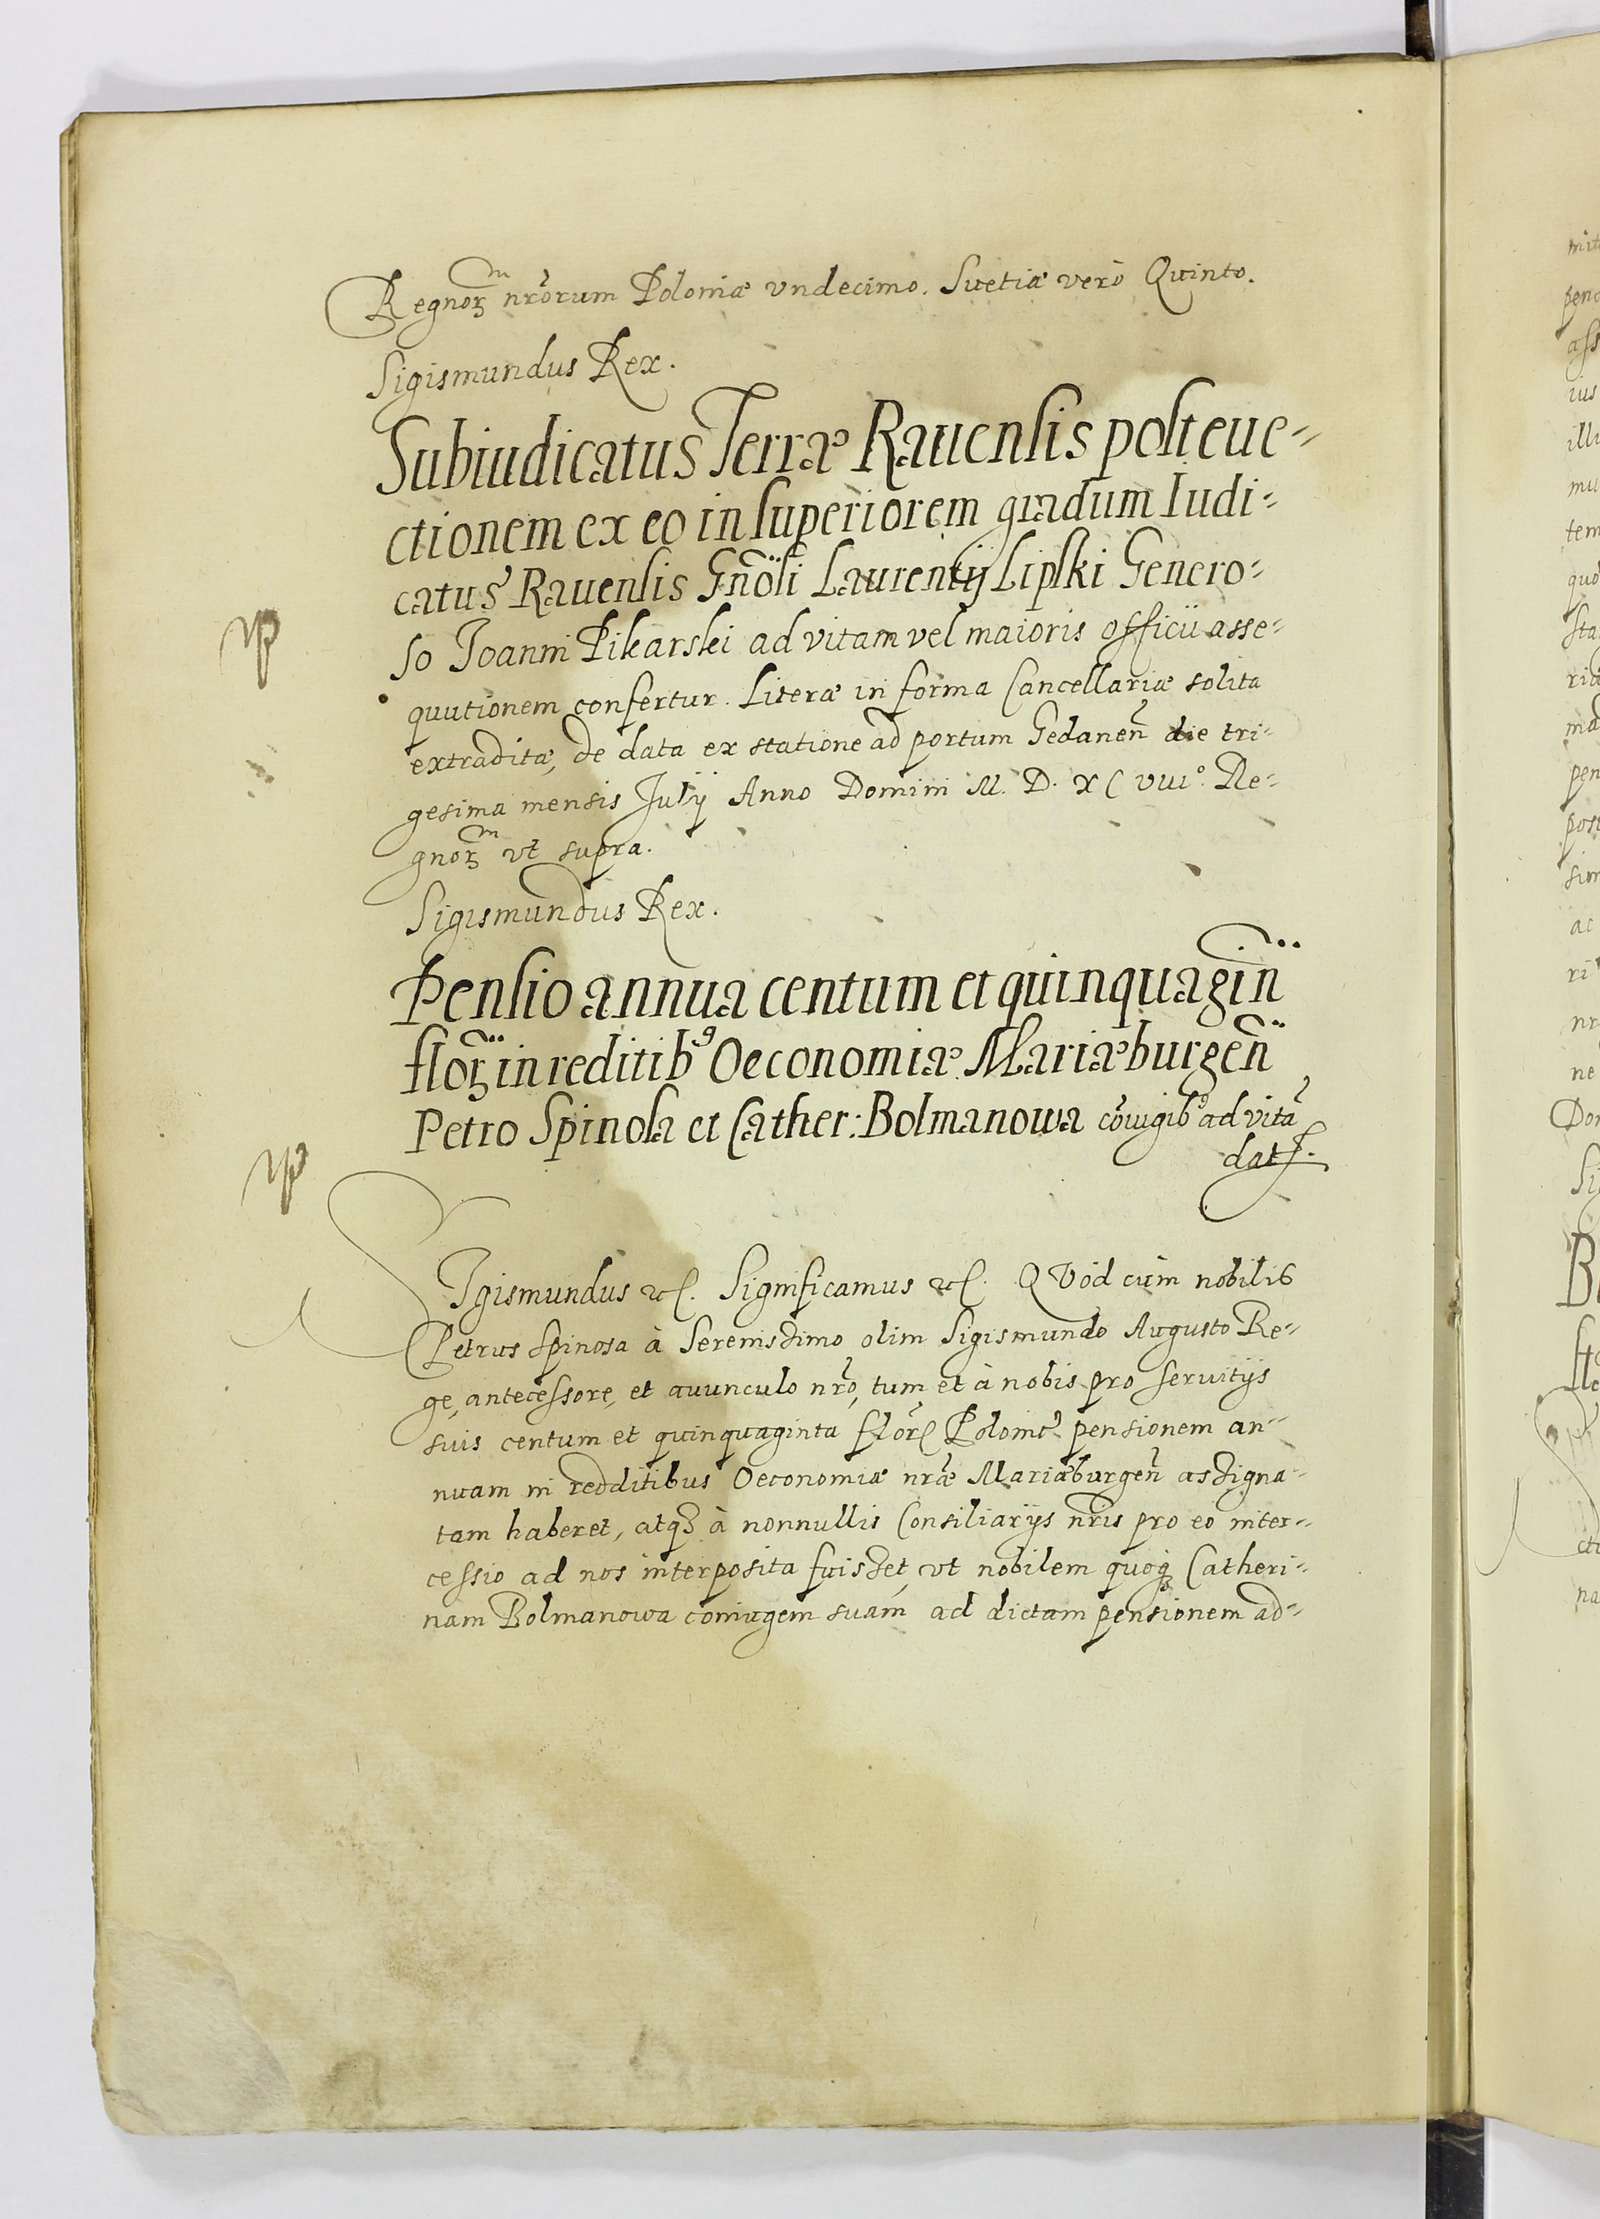 Regnorū nrōrum Poloniæ vndecimo. Suetiæ verò Quinto.
Sigismundus Rex.
Subiudicatus Terræ Rauensis post eue-
ctionem ex eo in superiorem gradum Iudi-
catus Rauensis Gnōsi Laurentij Lipski Genero-
so Joanni Pikarski ad vitam vel maioris officii asse-
quutionem confertur. Literæ in forma Cancellariæ solita
extraditæ, de data ex statione ad portum Gedaneñ die tri-
gesima mensis Julij Anno Domini M. D. XC viii°. Re-
gnorū vt supra.
Sigismundus Rex.
Pensio annua centum et quinquagiñ
floꝝ in reditibꝰ Oeconomiæ Mariæburgeñ
Petro Spinosa et Cather: Bolmanowa cōiugibꝰ ad vitā
datꝭ.
SIgismundus etc. Significamus etc. QVòd cùm nobilis
Petrus Spinosa à Serenissimo olim Sigismundo Augusto Re-
ge, antecessore, et auunculo nrō, tum et à nobis pro seruitijs
suis centum et quinquaginta florꝭ Polonic̄ pensionem an-
nuam in redditibus Oeconomiæ nrǣ Mariæburgeñ assigna-
tam haberet, atqꝫ à nonnullis Consiliarijs nrīs pro eo inter-
cessio ad nos interposita fuisset, vt nobilem quoqꝫ Catheri-
nam Bolmanowa coniugem suam ad dictam pensionem ad-